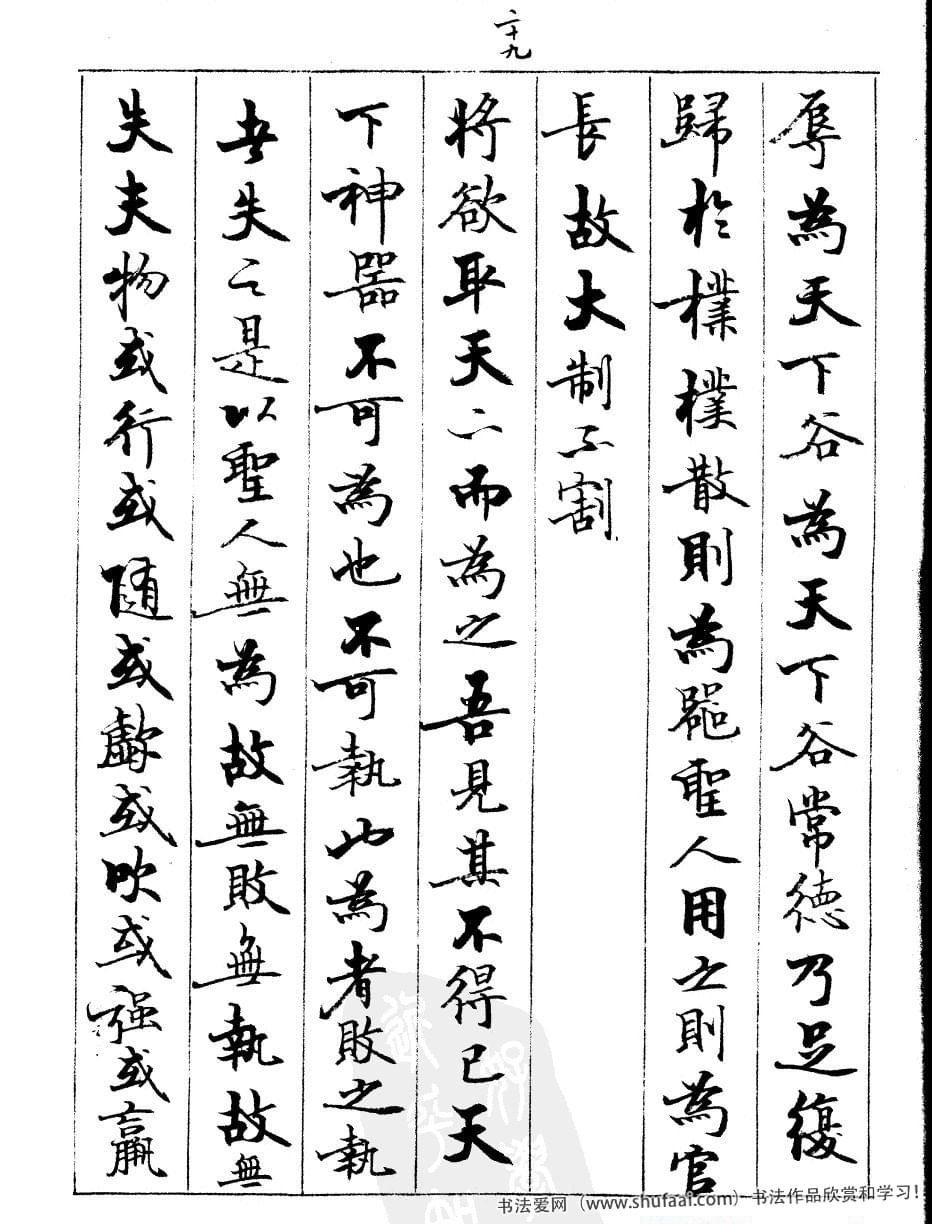 二十九
辱為天下谷為天下谷常德乃足復
歸於樸樸散則為器聖人用之則為官
長故大制不割
將欲取天下而為之吾見其不得已天
下神器不可為也不可執也為者敗之執
者失之是以聖人無為故無敗無執故無
失夫物或行或隨或歔或吹或强或羸
书法爱网（www.shufaai.com）—书法作品欣赏和学习！